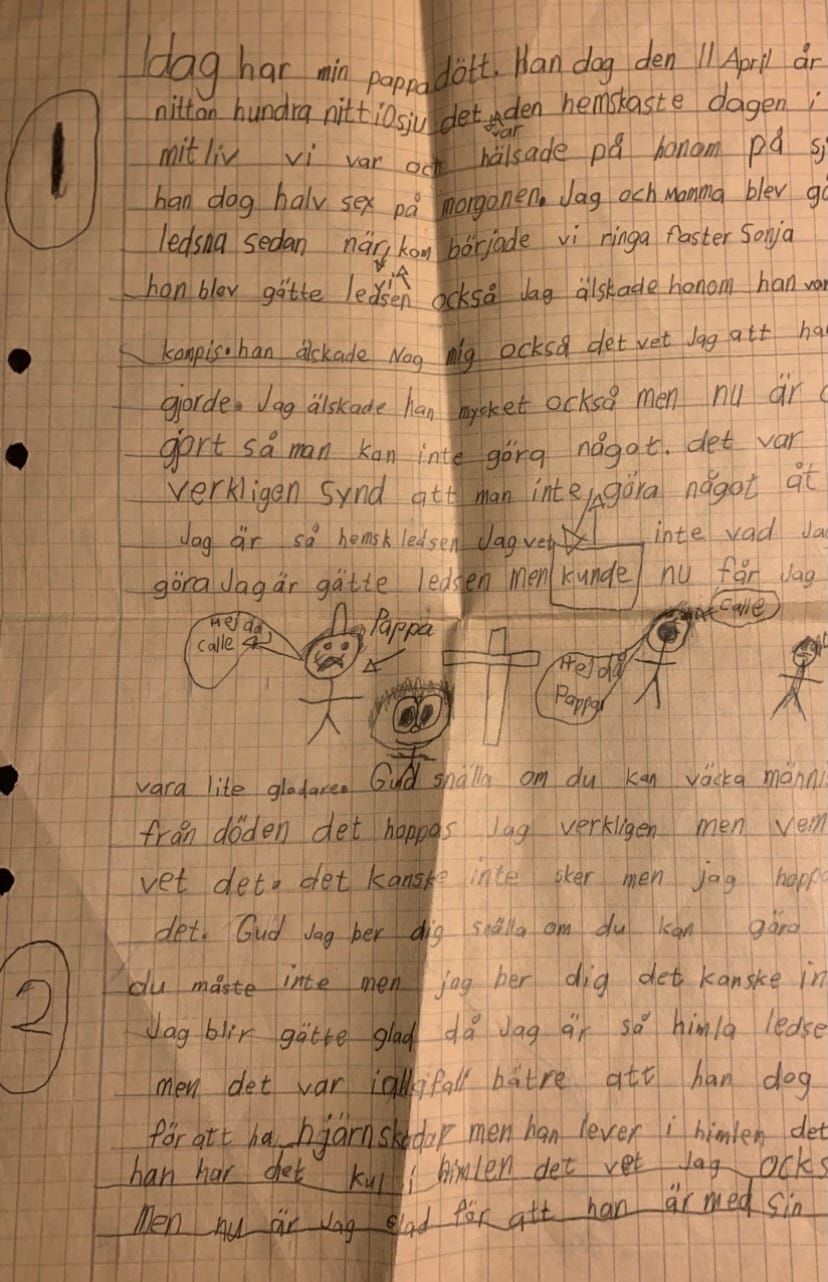 Idag har min pappa dött. Han dog den 11 April år
nitton hundra nittiosju det var den hemskaste dagen i
1
mit liv vi var och hälsade på honom på sj
han dog halv sex på morgonen. Jag och Mamma blev gä
ledsna sedan när vi kom började vi ringa faster Sonja
hon blev gätte ledsen också Jag älskade honom han var
kompis. han älskade Nog mig också det vet Jag att ha
gjorde. Jag älskade han mycket också men nu är
gjort så man kan inte göra något. det var
verkligen synd att man inte göra något åt
Jag är så hemsk ledsen Jag vet inte vad Ja
göra Jag är gätte ledsen men kunde nu får Jag
Hej då Calle
Pappa
Hej då Pappa
Calle
vara lite gladare. Gud snälla om du kan väcka männi
från döden det hoppas Jag verkligen men vem
vet det. det kanske inte sker men jag hopp
det. Gud Jag ber dig snälla om du kan göra
2
du måste inte men jag ber dig det kanske in
Jag blir gätte glad då Jag är så himla ledse
men det var iallafall bätre att han dog
för att ha hjärnskador men han lever i himlen det
han har det kul i himlen det vet Jag ocks
Men nu är Jag glad för att han är med sin